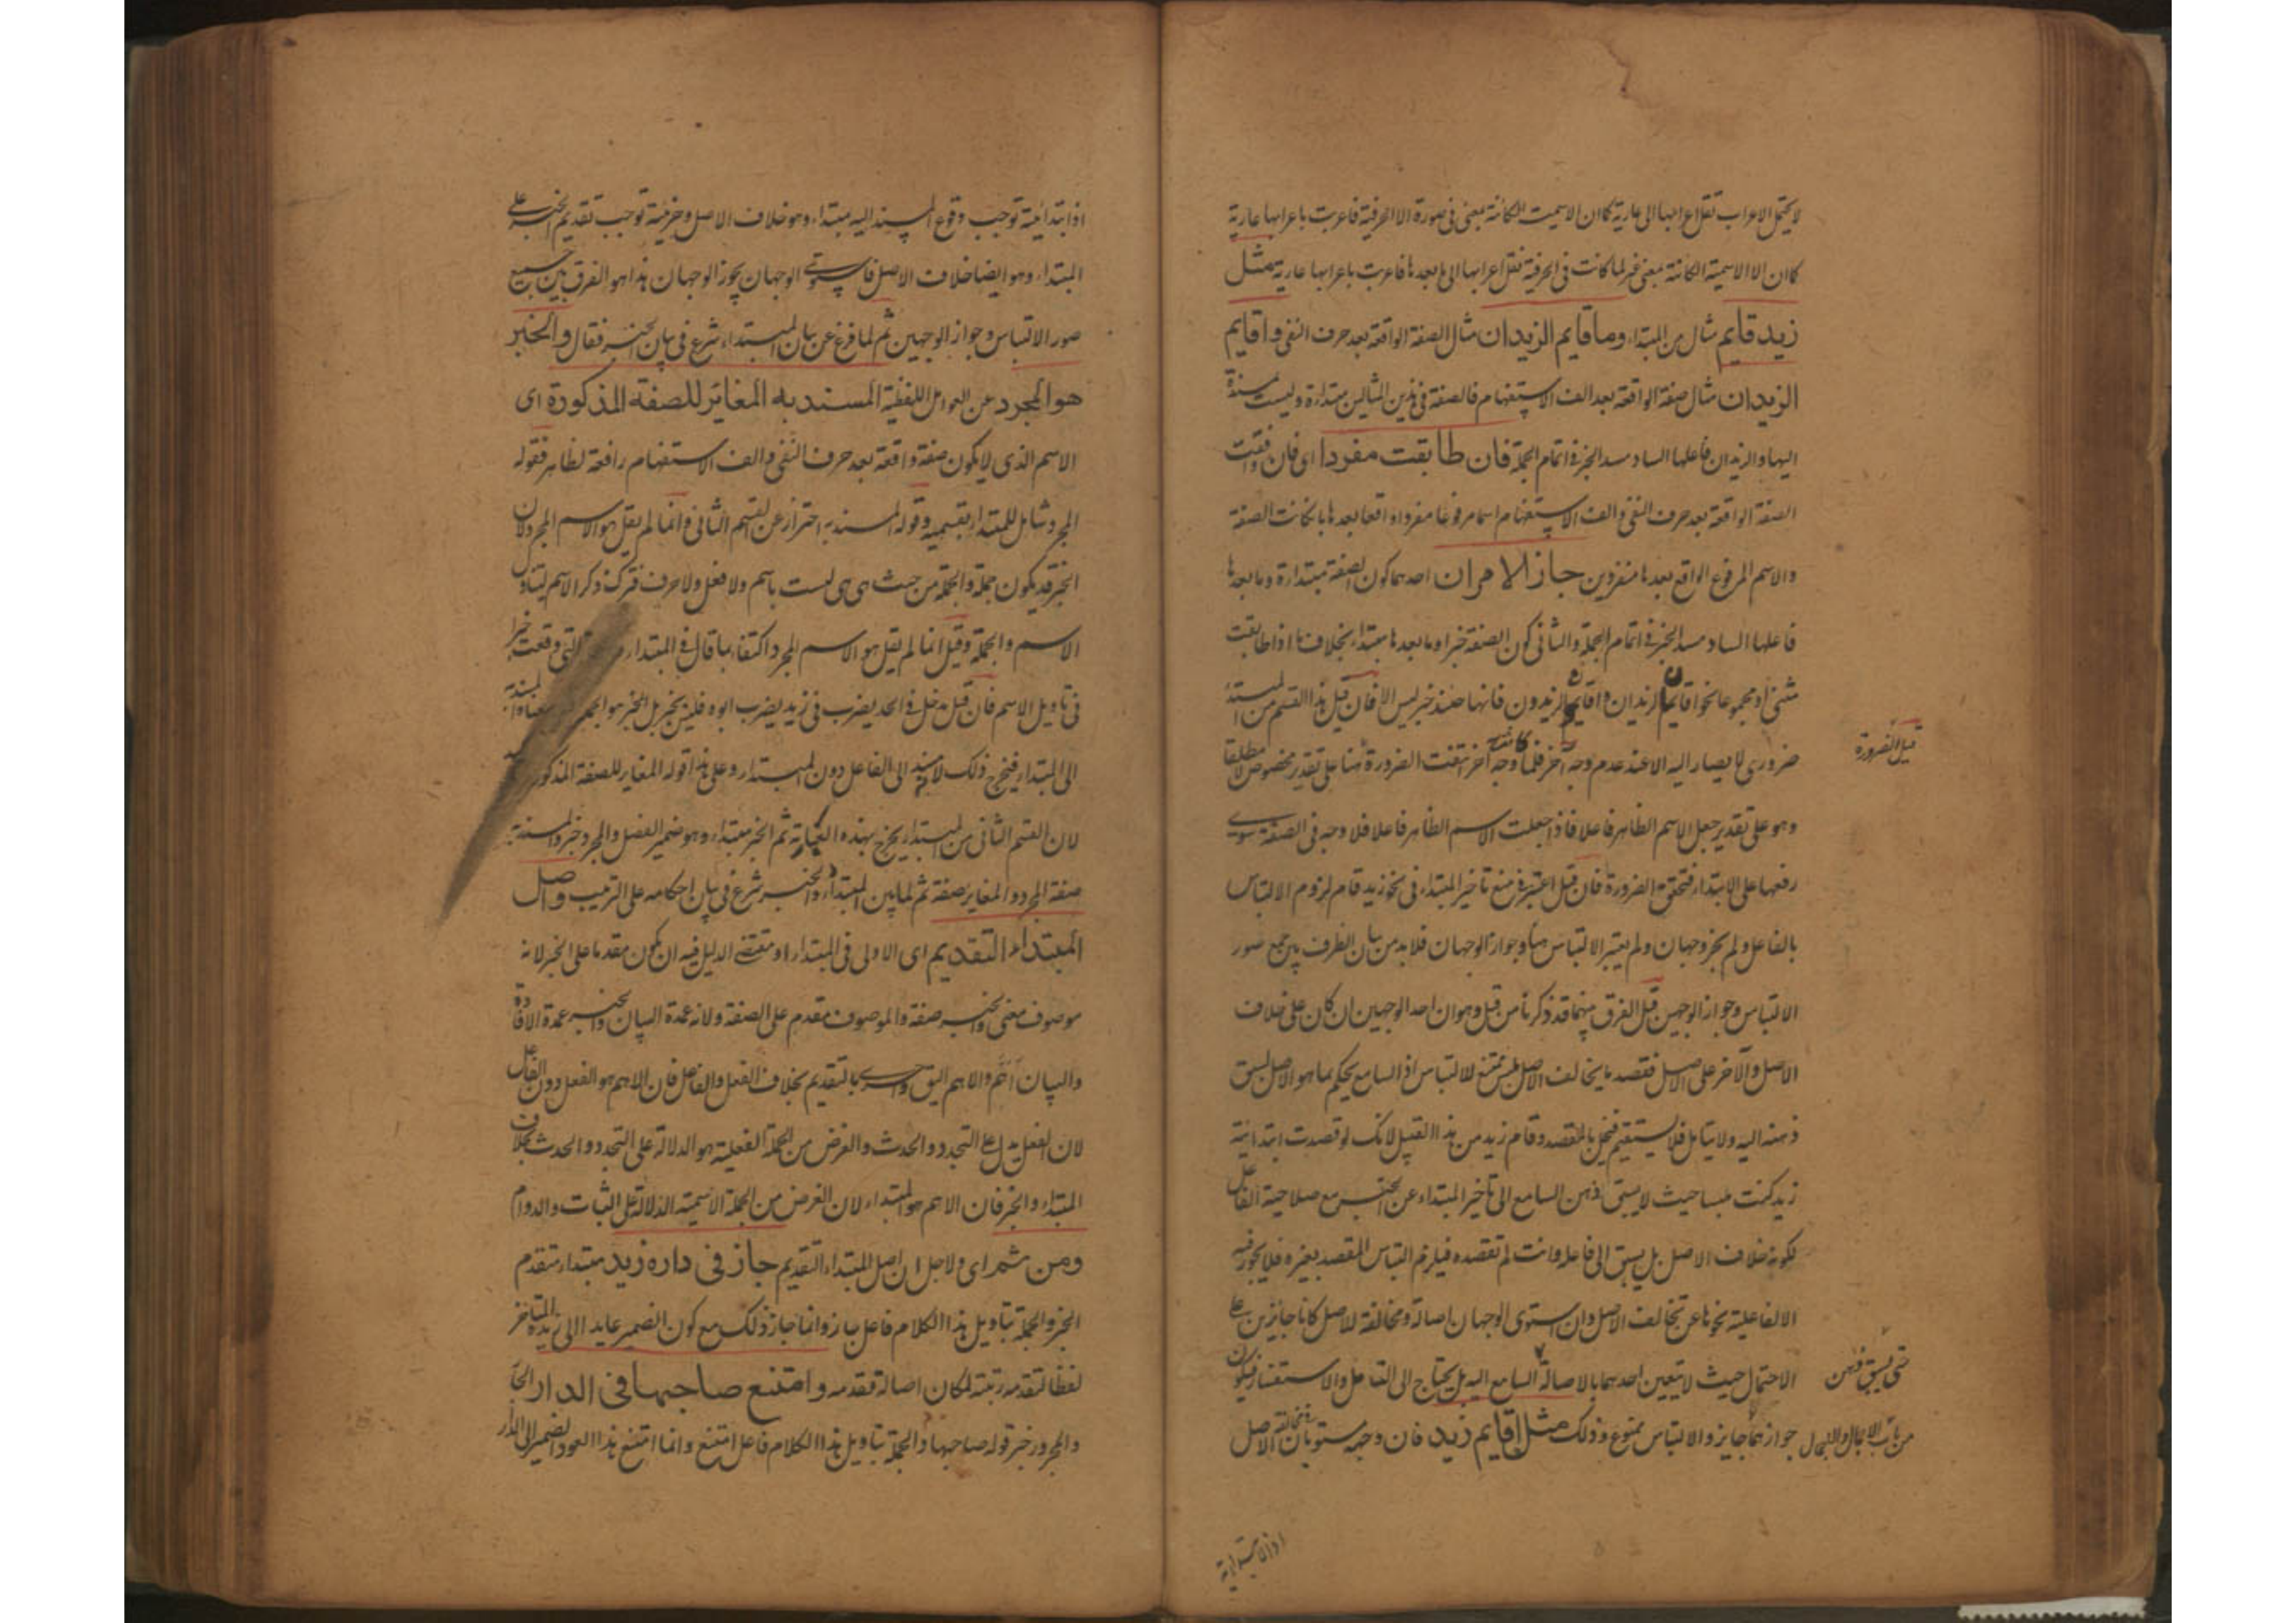 لا يحتمل الاعراب نقل اعرابها الى عارية كما ان الاسمية الكائنة بمعنى فى صورة الا الحرفية فاعربت باعرابها عارية
كما ان الا الاسمية الكائنة بمعنى غير لما كانت فى الحرفية نقل اعرابها الى ما بعدها فاعربت باعرابها عارية مثل
زيد قايم مثال من المبتداء وما قايم الزيدان مثال الصفة الواقعة بعد حرف النفى واقايم
الزيدان مثال صفة الواقعة بعد الف الاستفهام فالصفة فى هذين المثالين مبتداءة وليست مسندة
اليها والزيدان فاعلها الساد مسد الخبر فى اتمام الجملة فان طابقت مفردا اى فان وافقت
الصفة الواقعة بعد حرف النفى والف الاستفهام اسما مرفوعا مفردا واقعا بعدها بان كانت الصفة
والاسم المرفوع الواقع بعدها منفردين جاز الامران احدهما كون الصفة مبتداءة وما بعدها
فاعلها الساد مسد الخبر فى اتمام الجملة والثانى كون الصفة خبرا وما بعدها مبتداء بخلاف ما اذا طابقت
مثنى او مجموعا نحو اقايمان الزيدان واقايمون الزيدون فانها حينئذ خبر ليس الا فان قيل هذا القسم من المبتداء
قبيل الضرورة
ضرورى لا يصار اليه الا عند عدم وجه آخر فلما كان ثمه وجه آخر انتفت الضرورة هنا على تقدير مخصوص لا مطلقا
وهو على تقدير جعل الاسم الظاهر فاعلا فاذا جعلت الاسم الظاهر فاعلا فلا وجه فى الصفة سوى
رفعها على الابتداء فتحقق الضرورة فان قيل اعتبر فى منع تاخير المبتداء فى نحو زيد قام لزوم الالتباس
بالفاعل ولم يجز وجهان ولم يعتبر الالتباس هنا وجواز الوجهان فلا بد من بيان الظرف بين جمع صور
الالتباس وجواز الوجهين قيل الفرق بينهما قد ذكرنا من قبل وهو ان احد الوجهين ان كان على خلاف
الاصل والآخر على الاصل فقصد ما يخالف الاصل ليس ممتنع للالتباس اذ السامع يحكم بما هو الاصل لسبق
ذهنه اليه ولا يتامل فلا يستقيم فيخل بالمقصد وقام زيد من هذا القبيل لانك لو قصدت ابتدائية
زيد كنت ملبسا حيث لا يسبق ذهن السامع الى تاخير المبتداء عن الخبر مع صلاحية الفاعل
لكونه خلاف الاصل بل يسبق الى فاعل وانت لم تقصده فيلزم التباس المقصد بغيره فلا يجوز فيه
الا لفاعلية تحرزا عن تخالف الاصل وان استوى الوجهان اصالة ومخالفة للاصل كانا جائزين على
حتى يسبق ذهن
الاحتمال حيث لا يتعين احدهما بالاصالة السامع اليه بل يحتاج الى التامل والاستفسار فيكون
من باب الاجمال والاجمال
جوازهما جايز والالتباس ممنوع وذلك مثل اقايم زيد فان وجهيه مستويان فى مخالفة الاصل
اذ الابتدائية
اذ ابتدائية توجب وقوع المسند اليه مبتداء وهو خلاف الاصل وخبرية توجب تقديم الخبر على
المبتداء وهو ايضا خلاف الاصل فاستوى الوجهان يجوز الوجهان هذا هو الفرق بين جميع
صور الالتباس وجواز الوجهين ثم لما فرغ عن بيان المبتداء شرع فى بيان الخبر فقال والخبر
هو المجرد عن العوامل اللفظية المسند به المغاير للصفة المذكورة اى
الاسم الذى لا يكون صفة واقعة بعد حرف النفى والف الاستفهام رافعة لظاهر فقوله
المجرد شامل للمبتداء بقسميه وقوله المسند به احتراز عن القسم الثانى وانما لم يقل هو الاسم المجرد لان
الخبر قد يكون جملة والجملة من حيث هى هى ليست باسم ولا فعل ولا حرف فترك ذكر الاسم ليتناول
الاسم والجملة وقيل انما لم يقل هو الاسم المجرد اكتفاء بما قال فى المبتداء التى وقعت خبرا
فى تاويل الاسم فان قيل يدخل فى الحد يضرب فى زيد يضرب ابوه فليس بخبر بل الخبر هو الجملة معناه المسند به
الى المبتداء فيخرج ذلك لانه مسند الى الفاعل دون المبتداء وعلى هذا قوله المغاير للصفة المذكورة
لان القسم الثانى من المبتداء يخرج بهذه العبارة ثم الخبر مبتداء وهو ضمير الفصل والمجرد خبر والمسند به
صفة المجرد والمغاير صفة ثم لما بين المبتداء والخبر شرع فى بيان احكامه على الترتيب واصل
المبتداء التقديم اى الاولى فى المبتداء او مقتضى الدليل فيه ان يكون مقدما على الخبر لانه
موصوف معنى والخبر صفة والموصوف مقدم على الصفة ولانه عمدة البيان والخبر عمدة الافادة
والبيان اهم والاهم اليق واحرى بالتقديم بخلاف الفعل والفاعل فان الاهم هو الفعل دون الفاعل
لان الفعل يدل على التجدد والحدث والغرض من الجملة الفعلية هو الدلالة على التجدد والحدث بخلاف
المبتداء والخبر فان الاهم هو المبتداء لان الغرض من الجملة الاسمية الدلالة على الثبات والدوام
ومن ثم اى ولاجل ان اصل المبتداء التقديم جاز فى داره زيد مبتداء متقدم
الخبر والجملة بتاويل هذا الكلام فاعل جاز وانما جاز ذلك مع كون الضمير عايد الى زيد المتاخر
لفظا لتقدمه رتبة لمكان اصالة تقدمه وامتنع صاحبها فى الدار الجار
والمجرور خبر قوله صاحبها والجملة بتاويل هذا الكلام فاعل امتنع وانما امتنع هذا العود الضمير الى الدار